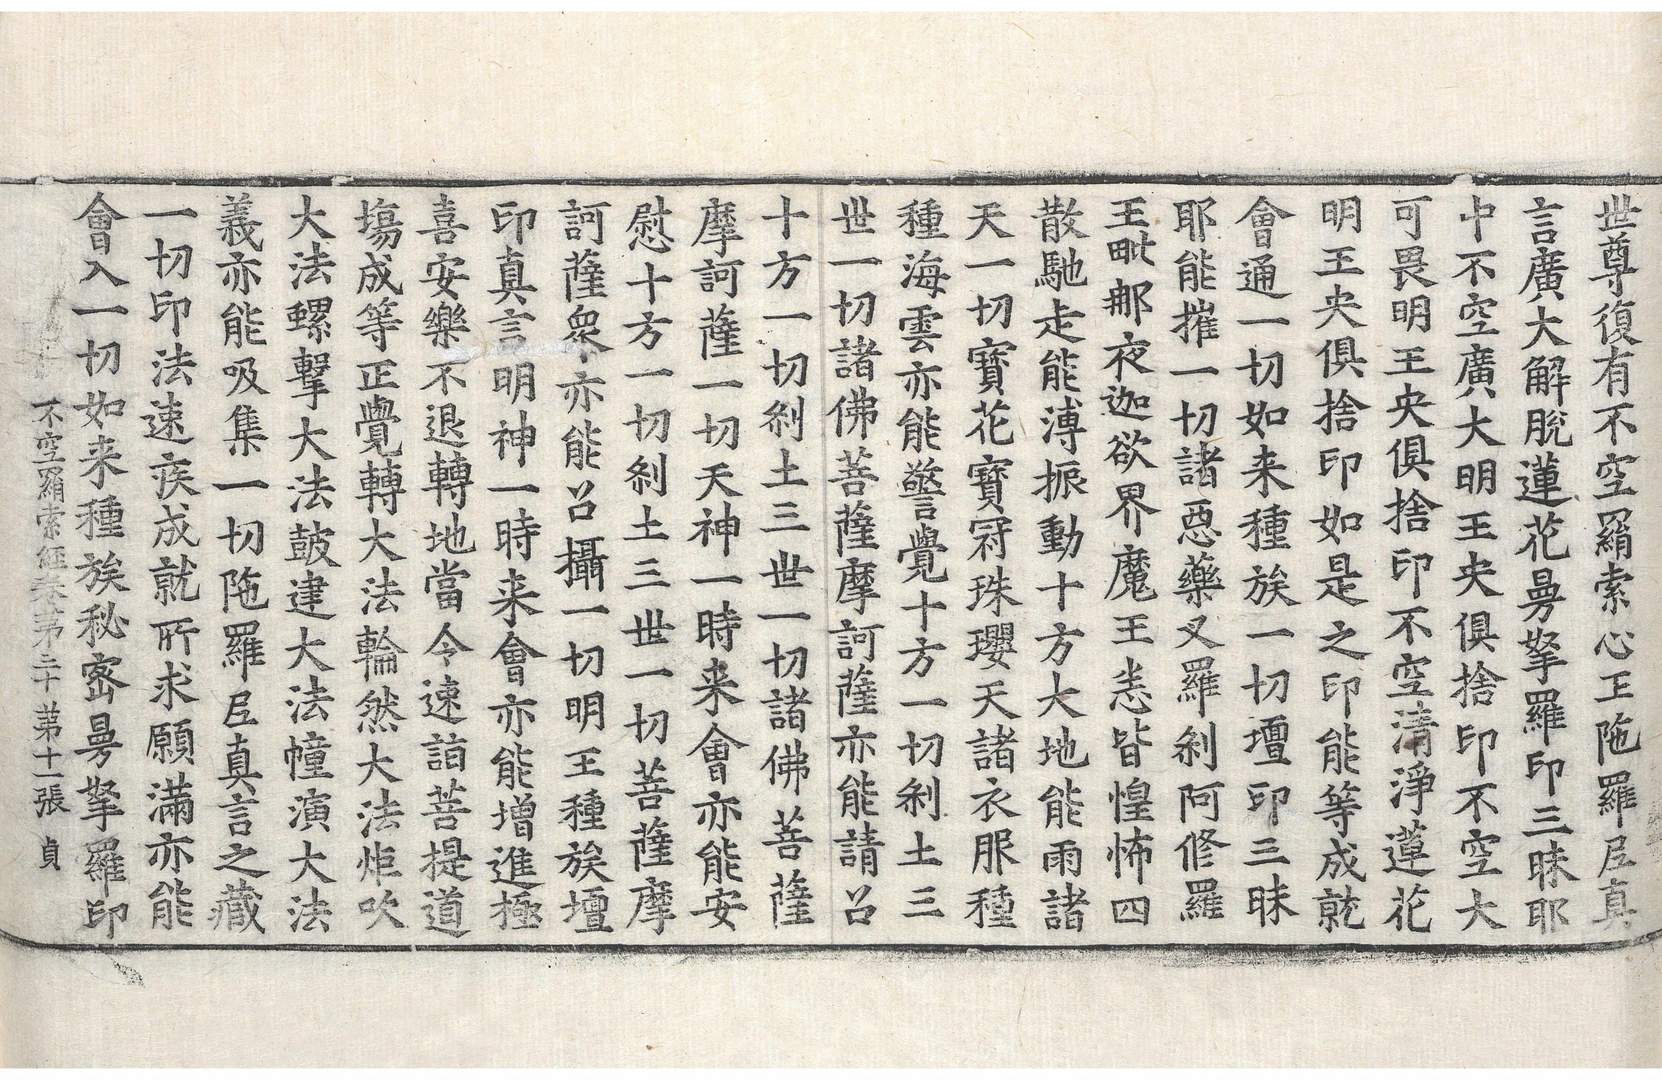 世尊復有不空羂索心王陁羅尼真
言廣大解脫蓮花曼拏羅印三昧耶
中不空廣大明王央俱捨印不空大
可畏明王央俱捨印不空清淨蓮花
明王央俱捨印如是之印能等成就
會通一切如来種族一切壇印三昧
耶能摧一切諸惡藥叉羅剎阿修羅
王毗那夜迦欲界魔王恙皆惶怖四
散馳走能溥振動十方大地能雨諸
天一切寶花寶冠珠瓔天諸衣服種
種海雲亦能警覺十方一切剎土三
世一切諸佛菩薩摩訶薩亦能請召
十方一切剎土三世一切諸佛菩薩
摩訶薩一切天神一時来會亦能安
慰十方一切剎土三世一切菩薩摩
訶薩眾亦能召攝一切明王種族壇
印真言明神一時来會亦能增進極
喜安樂不退轉地當令速詣菩提道
場成等正覺轉大法輪然大法炬吹
大法螺擊大法鼓建大法幢演大法
義亦能吸集一切陁羅尼真言之藏
一切印法速疾成就所求願滿亦能
會入一切如来種族秘密曼拏羅印
不空羂索經卷第二十 第十一張 貞